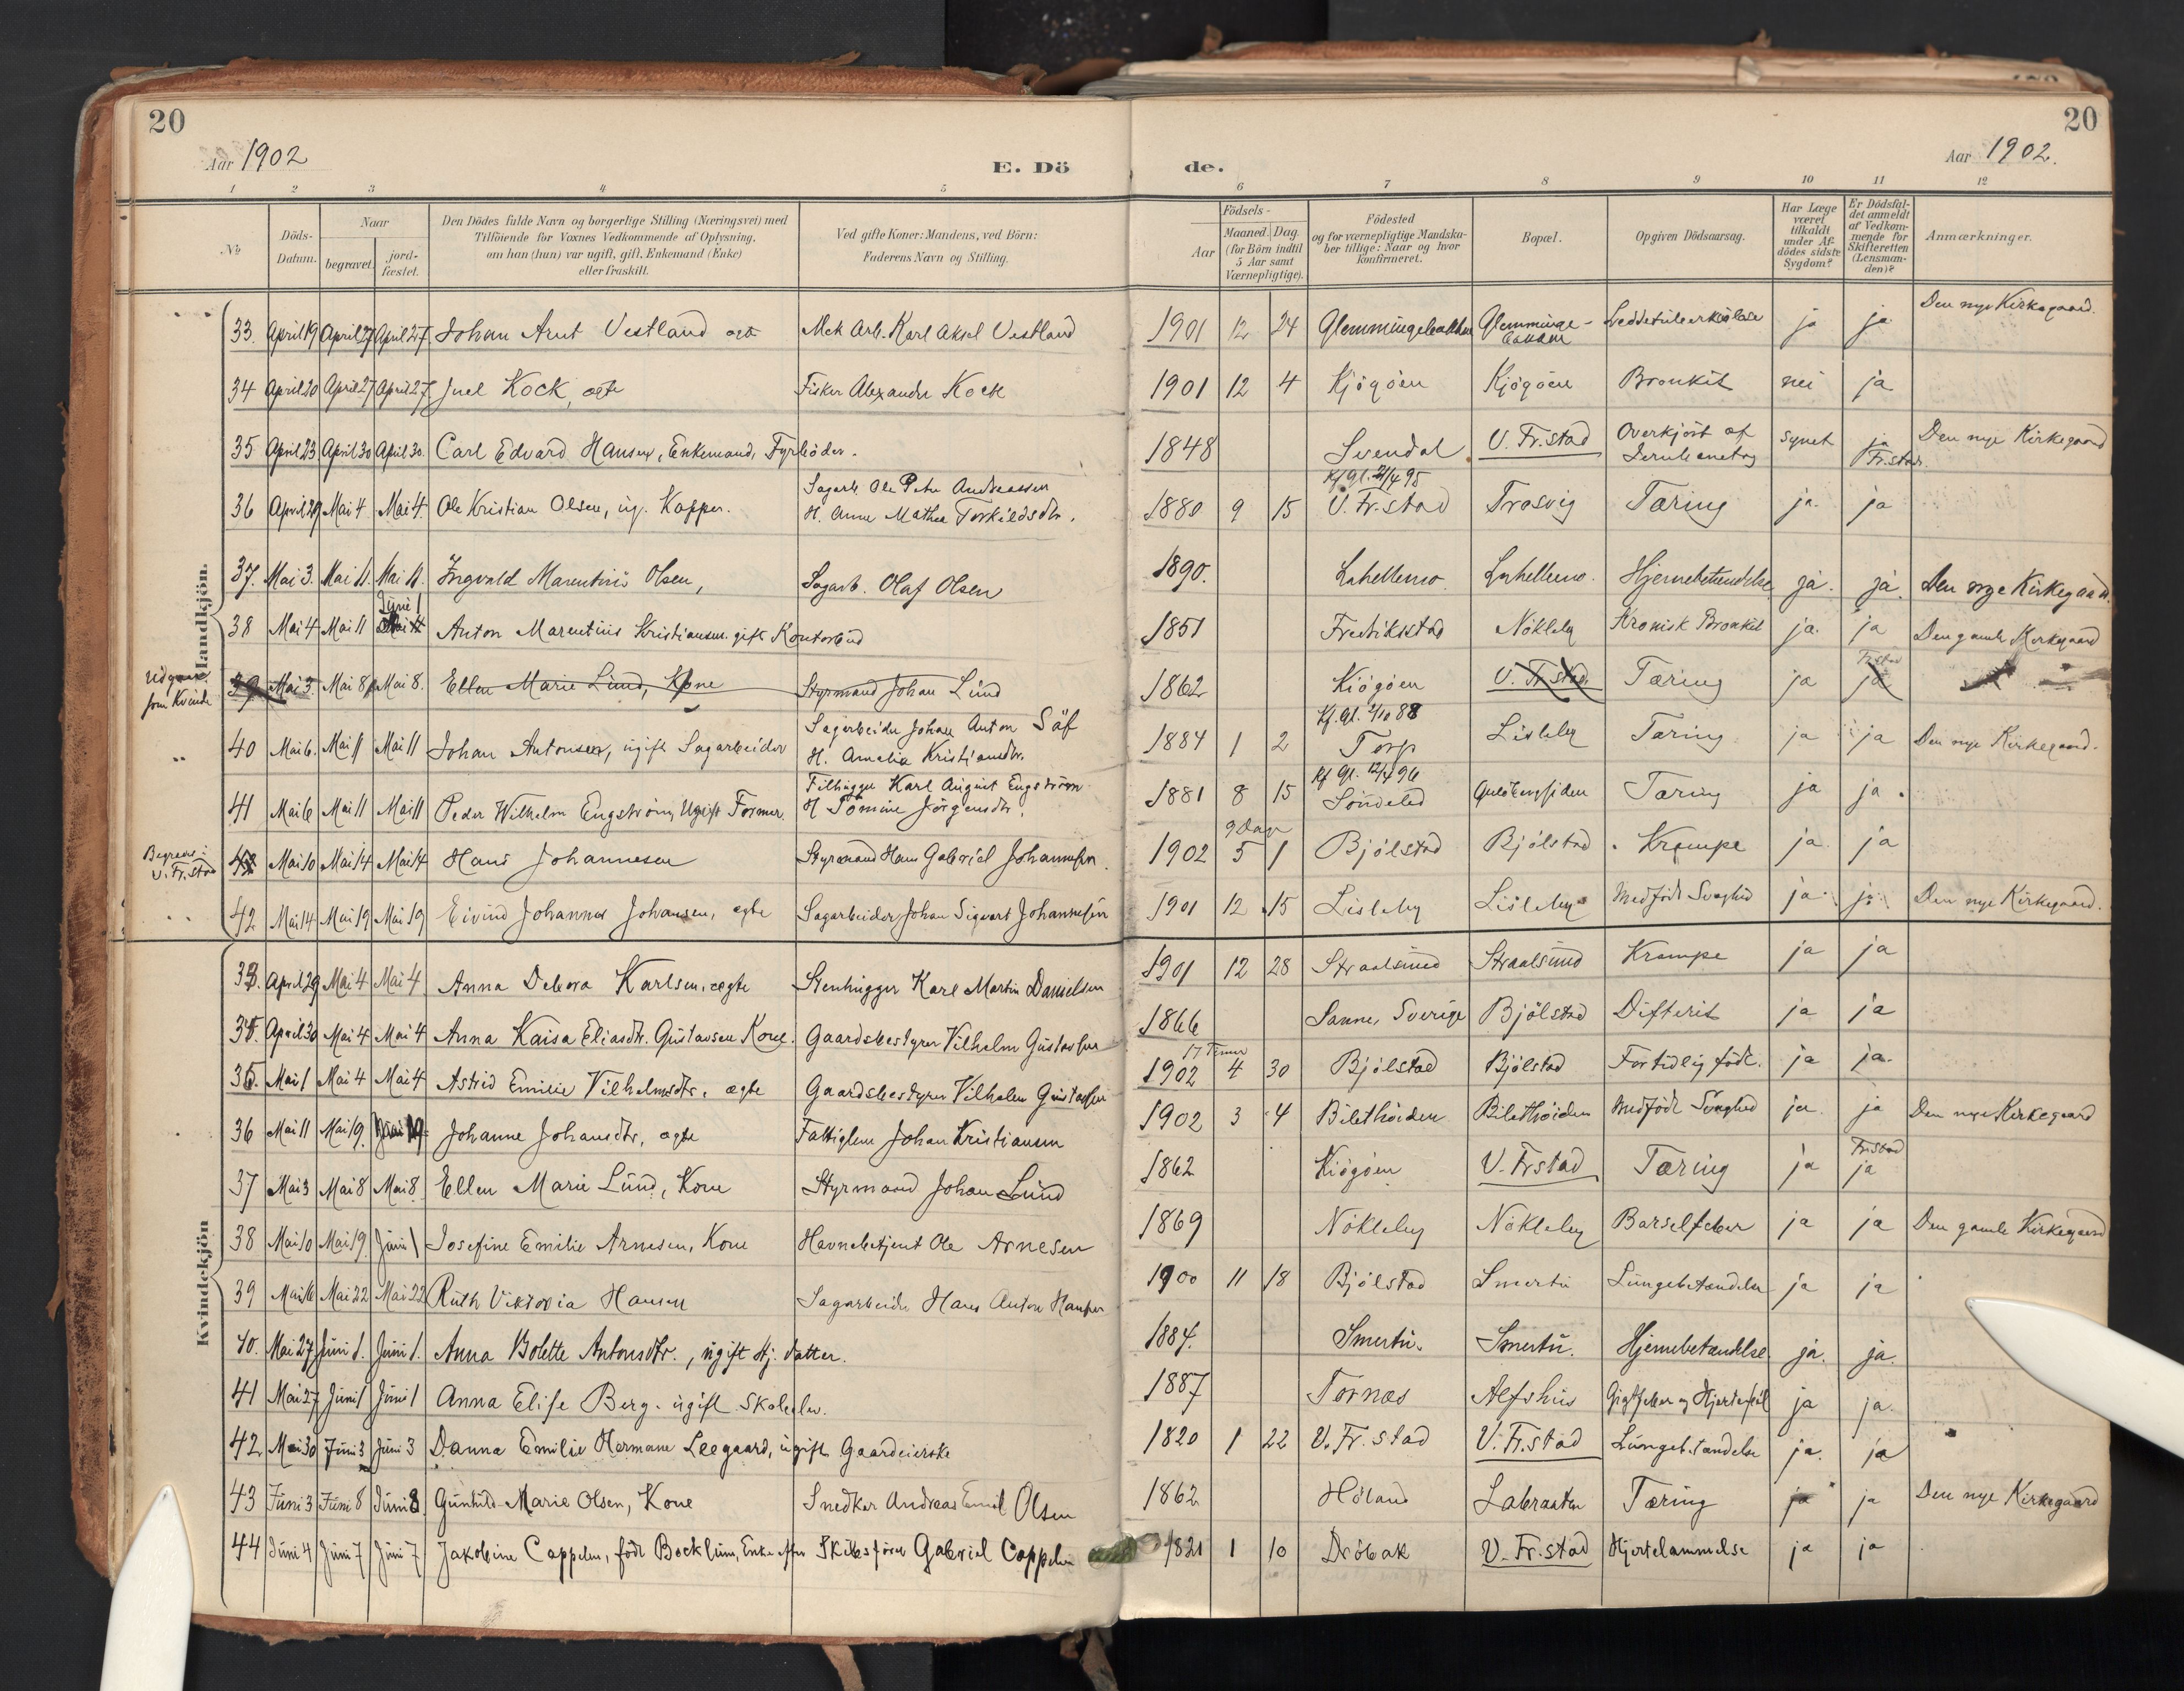 20
20
Aar 1902
E. Dö
de.
Aar 1902.
1 2 3 4 5 6 7 8 9 10 11 12
No
Döds-Datum.
Naar
begravet.
jord-fæstet.
Den Dödes fulde Navn og borgerlige Stilling (Næringsvei) med
Tilföiende for Voxnes Vedkommende af Oplysning,
om han (hun) var ugift, gift, Enkemand (Enke)
eller fraskilt.
Ved gifte Koner: Mandens, ved Börn:
Faderens Navn og Stilling.
Födsels-
Aar
Maaned. Dag.
(for Börn indtil
5 Aar samt
Værnepligtige).
Födested
og for værnepligtige Mandska-
ber tillige: Naar og hvor
konfirmeret.
Bopæl.
Opgiven Dödsaarsag.
Har Læge
været
tilkaldt
under Af-
dödes sidste
Sygdom?
Er Dödsfal-
det anmeldt
af Vedkom-
mende for
Skifteretten
(Lensman-
den)?
Anmærkninger.
Mandkjön.
33. April 19 April 27 April 27. Johan Arnt Vestland Mek Arb. Karl Aksel Vestland 1901 12 24 Glemmingebakken Glemminge-bakken ja ja Den nye Kirkegaard.
34 April 20 April 27 April 27. Juel Kock, ægte Fisker Alexander Kock 1901 12 4 Kjögöen Kjögöen Bronkit nei ja
35 April 23 April 30 April 30. Carl Edvard Hansen, Enkemand, Fyrböder. 1848 Svendal V. Fr.stad Overkjört af Jernbanetog synet ja Fr.stad Den nye Kirkegaard
36 April 29 Mai 4 Mai 4. Ole Kristian Olsen, ug. Kapper. Sagarb. Ole Peter Andreassen
H. Anne Mathea Torkildsdtr. 1880 9 15 Kf Gl. 21/4 95 V. Fr.stad Trosvig Tæring ja. ja
37. Mai 3. Mai 11. Mai 11. Ingvald Marentius Olsen, Sagarb. Olaf Olsen 1890. Lahellemo Lahellemo. Hjernebetændelse ja. ja. Den nye Kirkegaard.
38 Mai 4 Mai 11 Juni 1 Anton Marentius Kristiansen gift Kontorbud 1851 Fredrikstad Nökleby Kronisk Bronkit ja. ja Den gamle Kirkegaard
udgaar som Kvinde
39 Mai 3. Mai 8. Mai 8. Ellen Marie Lund, Kone Styrmand Johan Lund 1862 Kiögöen V. Fr.stad Tæring ja Fr.stad ja
40 Mai 6. Mai 11 Mai 11 Johan Antonsen, ugift Sagarbeider Sagarbeider Johan Anton Säf
H. Amalia Kristiansdtr. 1884 1 2 Torp Lisleby Tæring ja ja Den nye Kirkegaard.
41 Mai 6 Mai 11 Mai 11 Peder Wilhelm Engström, Ugift Former. Filhugger Karl August Engström
H Tomine Jörgensdtr. 1881 8 15 Kf Gl. 12/4 96 Söndeled Tæring ja ja.
Begravet i V. Fr.stad
Mai 10 Mai 14 Mai 14 Hans Johannesen Styrmand Hans Gabriel Johannesen. 1902 5 1 9 Dage Bjölstad Bjölstad Krampe ja ja
42 Mai 14 Mai 19 Mai 19 Eivind Johannes Johansen, ægte Sagarbeider Johan Sigvart Johannesen 1901 12 15 Lisleby Lisleby Medfödt Svaghed ja ja Den nye Kirkegaard.
Kvindekjön
33. April 29 Mai 4 Mai 4 Anna Debora Karlsen, ægte Stenhugger Karl Martin Danielsen 1901 12 28 Straalsund Straalsund Krampe ja ja
34. April 30 Mai 4 Mai 4 Anna Kaisa Eliasdtr. Gustavsen Kone. Gaardsbestyrer Vilhelm Gustavsen 1866 Sanne, Sverige Bjölstad Difterit ja ja
35. Mai 1 Mai 4 Mai 4 Astrid Emilie Vilhelmsdtr. ægte Gaardsbestyrer Vilhelm Gustavsen 17 Timer 1902 4 30 Bjölstad Bjölstad For tidlig födt. ja ja.
36 Mai 11 Mai 19. 19. Johanne Johansdtr, ægte Fattiglem Johan Kristiansen 1902 3 4 Bilethöiden Bilethöiden Medfödt Svaghed ja ja Den nye Kirkegaard
37 Mai 3 Mai 8 Mai 8. Ellen Marie Lund, Kone Styrmand Johan Lund 1862 Kiögöen V. Frstad Tæring ja Fr.stad ja
38 Mai 10 Mai 19. Juni 1 Josefine Emilie Arnesen, Kone Havnebetjent Ole Arnesen 1869 Nökleby Nökleby Barselfeber ja ja Den gamle Kirkegaard
39 Mai 16 Mai 22 Mai 22 Ruth Viktoria Hansen Sagarbeider Hans Anton Hansen 1900 11 18 Bjölstad Smertu Lungebetændelse ja ja
40. Mai 27 Juni 1. Juni 1. Anna Bolette Antonsdtr., ugift Hj. datter. 1884. Smertu. Smertu. Hjernebetændelse. ja. ja.
41 Mai 27 Juni 1 Juni 1 Anna Elise Berg. ugift Skoleelev. 1887 Tornæs Alfshus Gigtfeber og Hjertefeil ja ja.
42 Mai 30 Juni 3 Juni 3 Danna Emilie Hermane Leegaard, ugift Gaardeierske 1820 1 22 V. Fr. stad V. Fr.stad Lungebetændelse ja. ja
43 Juni 3 Juni 8 Juni 8. Gunhild Marie Olsen, Kone Snedker Andreas Emil Olsen 1862 Höland Labraaten Tæring ja ja Den nye Kirkegaard
44 Juni 4 Juni 7 Juni 7 Jakobine Cappelen, födt Bocklum, Enke efter Skibsförer Gabriel Cappelen 1821 1 10 Dröbak V. Fr.stad Hjertelammelse ja ja